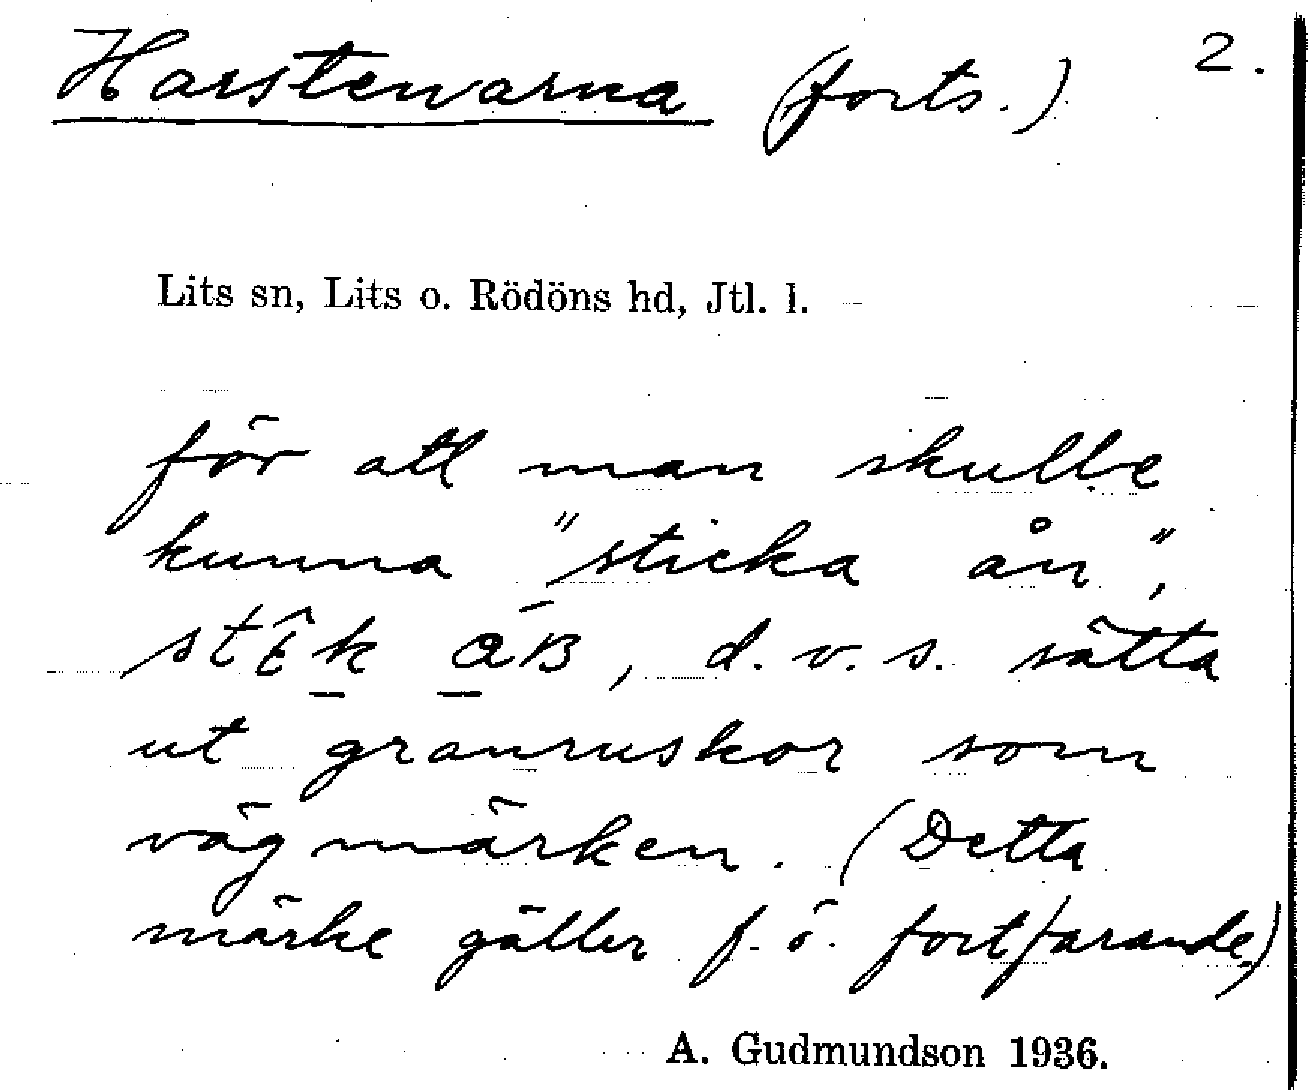 Harstenarna (forts.) 2.
Lits sn, Lits o. Rödöns hd, Jtl. l.
för att man skulle
kunna "sticka ån",
d.v.s. sätta
ut granruskor som
vägmärken. (Detta
märke gäller f.ö. fortfarande.)
A. Gudmundson 1936.